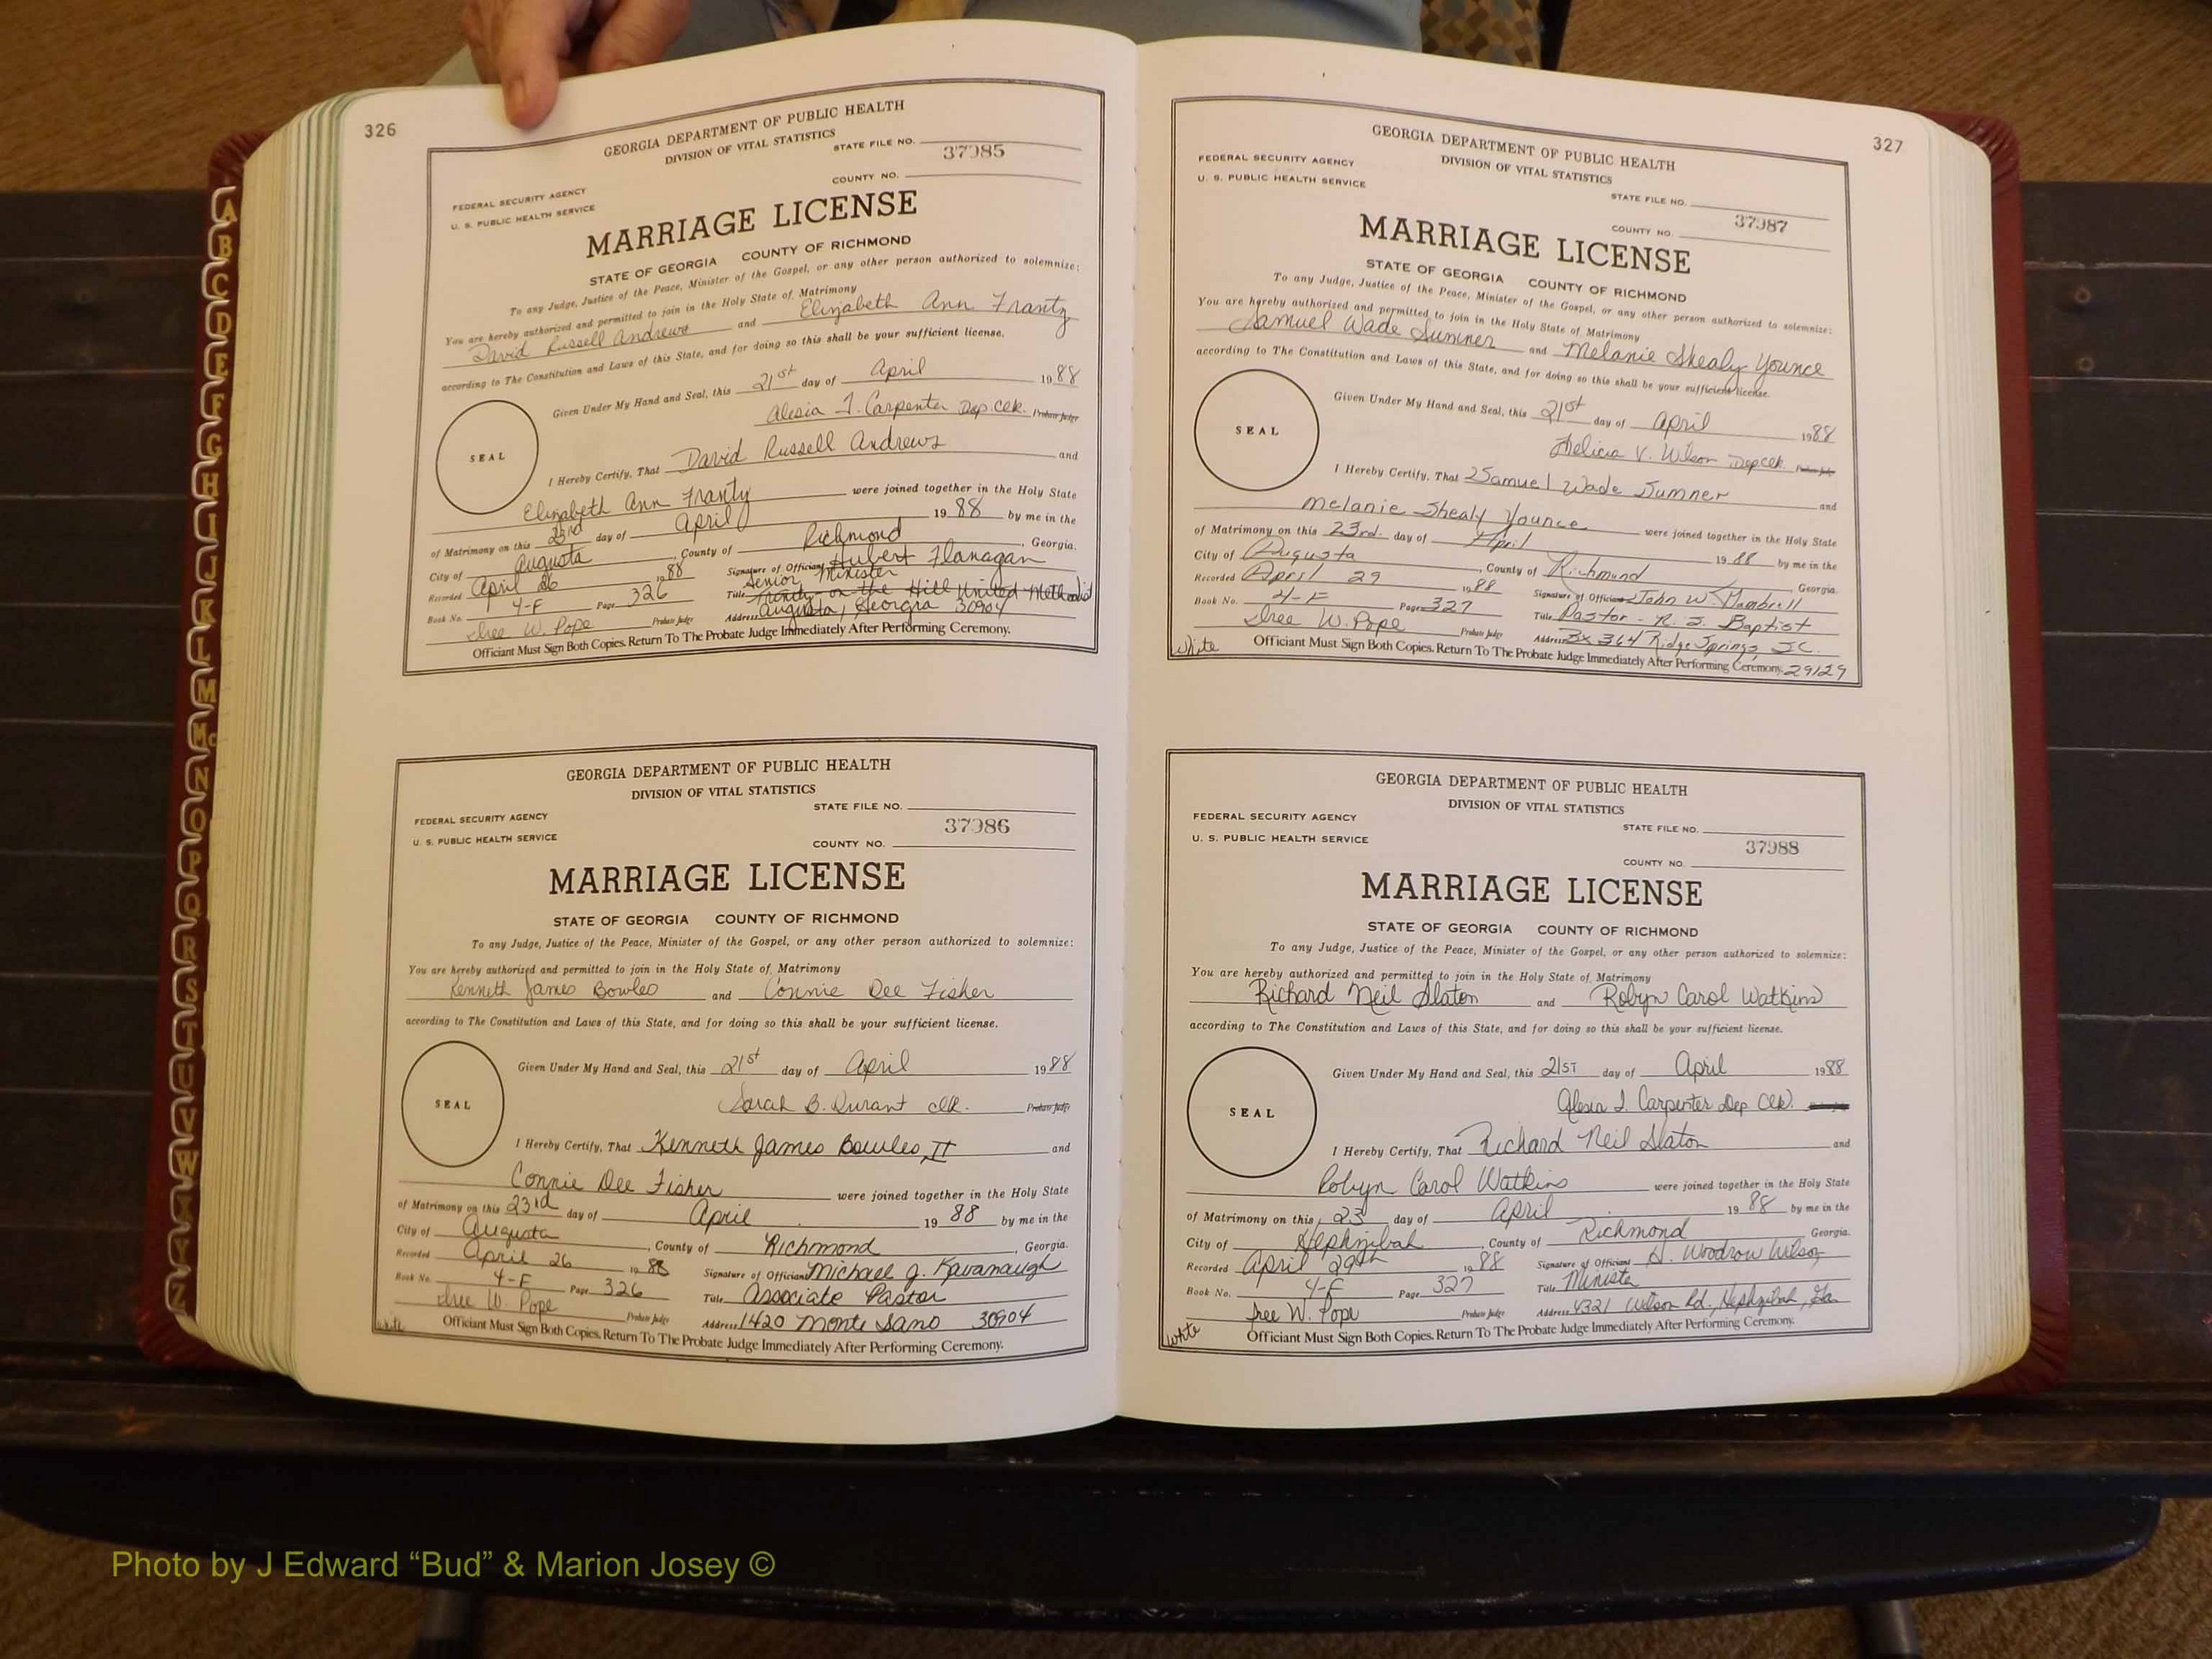 326
GEORGIA DEPARTMENT OF PUBLIC HEALTH
DIVISION OF VITAL STATISTICS
STATE FILE NO.
37985
FEDERAL SECURITY AGENCY
COUNTY NO.
U. S. PUBLIC HEALTH SERVICE
MARRIAGE LICENSE
STATE OF GEORGIA COUNTY OF RICHMOND
To any Judge, Justice of the Peace, Minister of the Gospel, or any other person authorized to solemnize:
You are hereby authorized and permitted to join in the Holy State of Matrimony
David Russell Andrews and Elizabeth Ann Frantz
according to The Constitution and Laws of this State, and for doing so this shall be your sufficient license.
Given Under My Hand and Seal, this 21st day of April 1988
Alesia J. Carpenter Dep. Clk. Probate Judge
SEAL
I Hereby Certify, That David Russell Andrews and
Elizabeth Ann Frantz were joined together in the Holy State
of Matrimony on this 23rd day of April 19 88 by me in the
City of Augusta, County of Richmond, Georgia.
Recorded April 26 1988 Signature of Officiant Hubert Flanagan
Senior Minister
Book No. 4-F Page 326 Title Trinity-on-the Hill United Methodist
Iree W. Pope Probate Judge Address Augusta, Georgia 30904
Officiant Must Sign Both Copies. Return To The Probate Judge Immediately After Performing Ceremony.
GEORGIA DEPARTMENT OF PUBLIC HEALTH
DIVISION OF VITAL STATISTICS
STATE FILE NO.
FEDERAL SECURITY AGENCY
37986
U. S. PUBLIC HEALTH SERVICE
COUNTY NO.
MARRIAGE LICENSE
STATE OF GEORGIA COUNTY OF RICHMOND
To any Judge, Justice of the Peace, Minister of the Gospel, or any other person authorized to solemnize:
You are hereby authorized and permitted to join in the Holy State of Matrimony
Kenneth James Bowles and Connie Dee Fisher
according to The Constitution and Laws of this State, and for doing so this shall be your sufficient license.
Given Under My Hand and Seal, this 21st day of April 1988
Sarah B. Durant clk. Probate Judge
SEAL
I Hereby Certify, That Kenneth James Bowles, II and
Connie Dee Fisher were joined together in the Holy State
of Matrimony on this 23rd day of April 19 88 by me in the
City of Augusta, County of Richmond, Georgia.
Recorded April 26 1988 Signature of Officiant Michael J. Kavanaugh
Book No. 4-F Page 326 Title Associate Pastor
Iree W. Pope Probate Judge Address 1420 Monte Sano 30904
white Officiant Must Sign Both Copies. Return To The Probate Judge Immediately After Performing Ceremony.
327
GEORGIA DEPARTMENT OF PUBLIC HEALTH
DIVISION OF VITAL STATISTICS
FEDERAL SECURITY AGENCY
U. S. PUBLIC HEALTH SERVICE
STATE FILE NO.
37987
COUNTY NO.
MARRIAGE LICENSE
STATE OF GEORGIA COUNTY OF RICHMOND
To any Judge, Justice of the Peace, Minister of the Gospel, or any other person authorized to solemnize:
You are hereby authorized and permitted to join in the Holy State of Matrimony
Samuel Wade Sumner and Melanie Shealy Younce
according to The Constitution and Laws of this State, and for doing so this shall be your sufficient license.
Given Under My Hand and Seal, this 21st day of April 1988
Felicia V. Wilson Dep clk. Probate Judge
SEAL
I Hereby Certify, That Samuel Wade Sumner and
Melanie Shealy Younce were joined together in the Holy State
of Matrimony on this 23rd. day of April 19 88 by me in the
City of Augusta, County of Richmond, Georgia.
Recorded April 29 1988 Signature of Officiant John W.
Book No. 4-F Page 327 Title Pastor - R. S. Baptist
Iree W. Pope Probate Judge Address Bx 364 Ridge Springs, SC.
white Officiant Must Sign Both Copies. Return To The Probate Judge Immediately After Performing Ceremony. 29129
GEORGIA DEPARTMENT OF PUBLIC HEALTH
DIVISION OF VITAL STATISTICS
FEDERAL SECURITY AGENCY
STATE FILE NO.
U. S. PUBLIC HEALTH SERVICE
37988
COUNTY NO.
MARRIAGE LICENSE
STATE OF GEORGIA COUNTY OF RICHMOND
To any Judge, Justice of the Peace, Minister of the Gospel, or any other person authorized to solemnize:
You are hereby authorized and permitted to join in the Holy State of Matrimony
Richard Neil Slaton and Robyn Carol Watkins
according to The Constitution and Laws of this State, and for doing so this shall be your sufficient license.
Given Under My Hand and Seal, this 21ST day of April 1988
Alesia J. Carpenter Dep Clk.
SEAL
I Hereby Certify, That Richard Neil Slaton and
Robyn Carol Watkins were joined together in the Holy State
of Matrimony on this 23 day of April 19 88 by me in the
City of Hephzibah, County of Richmond Georgia.
Recorded April 29th 1988 Signature of Officiant H. Woodrow Wilson
Book No. 4-F Page 327 Title Minister
Iree W. Pope Probate Judge Address 4321 Wilson Rd., Hephzibah, Ga
white Officiant Must Sign Both Copies. Return To The Probate Judge Immediately After Performing Ceremony.
A
B
C
D
E
F
G
H
I
J
K
L
M
Mc
N
O
P
Q
R
S
T
U
V
W
X
Y
Z
Photo by J Edward “Bud” & Marion Josey ©